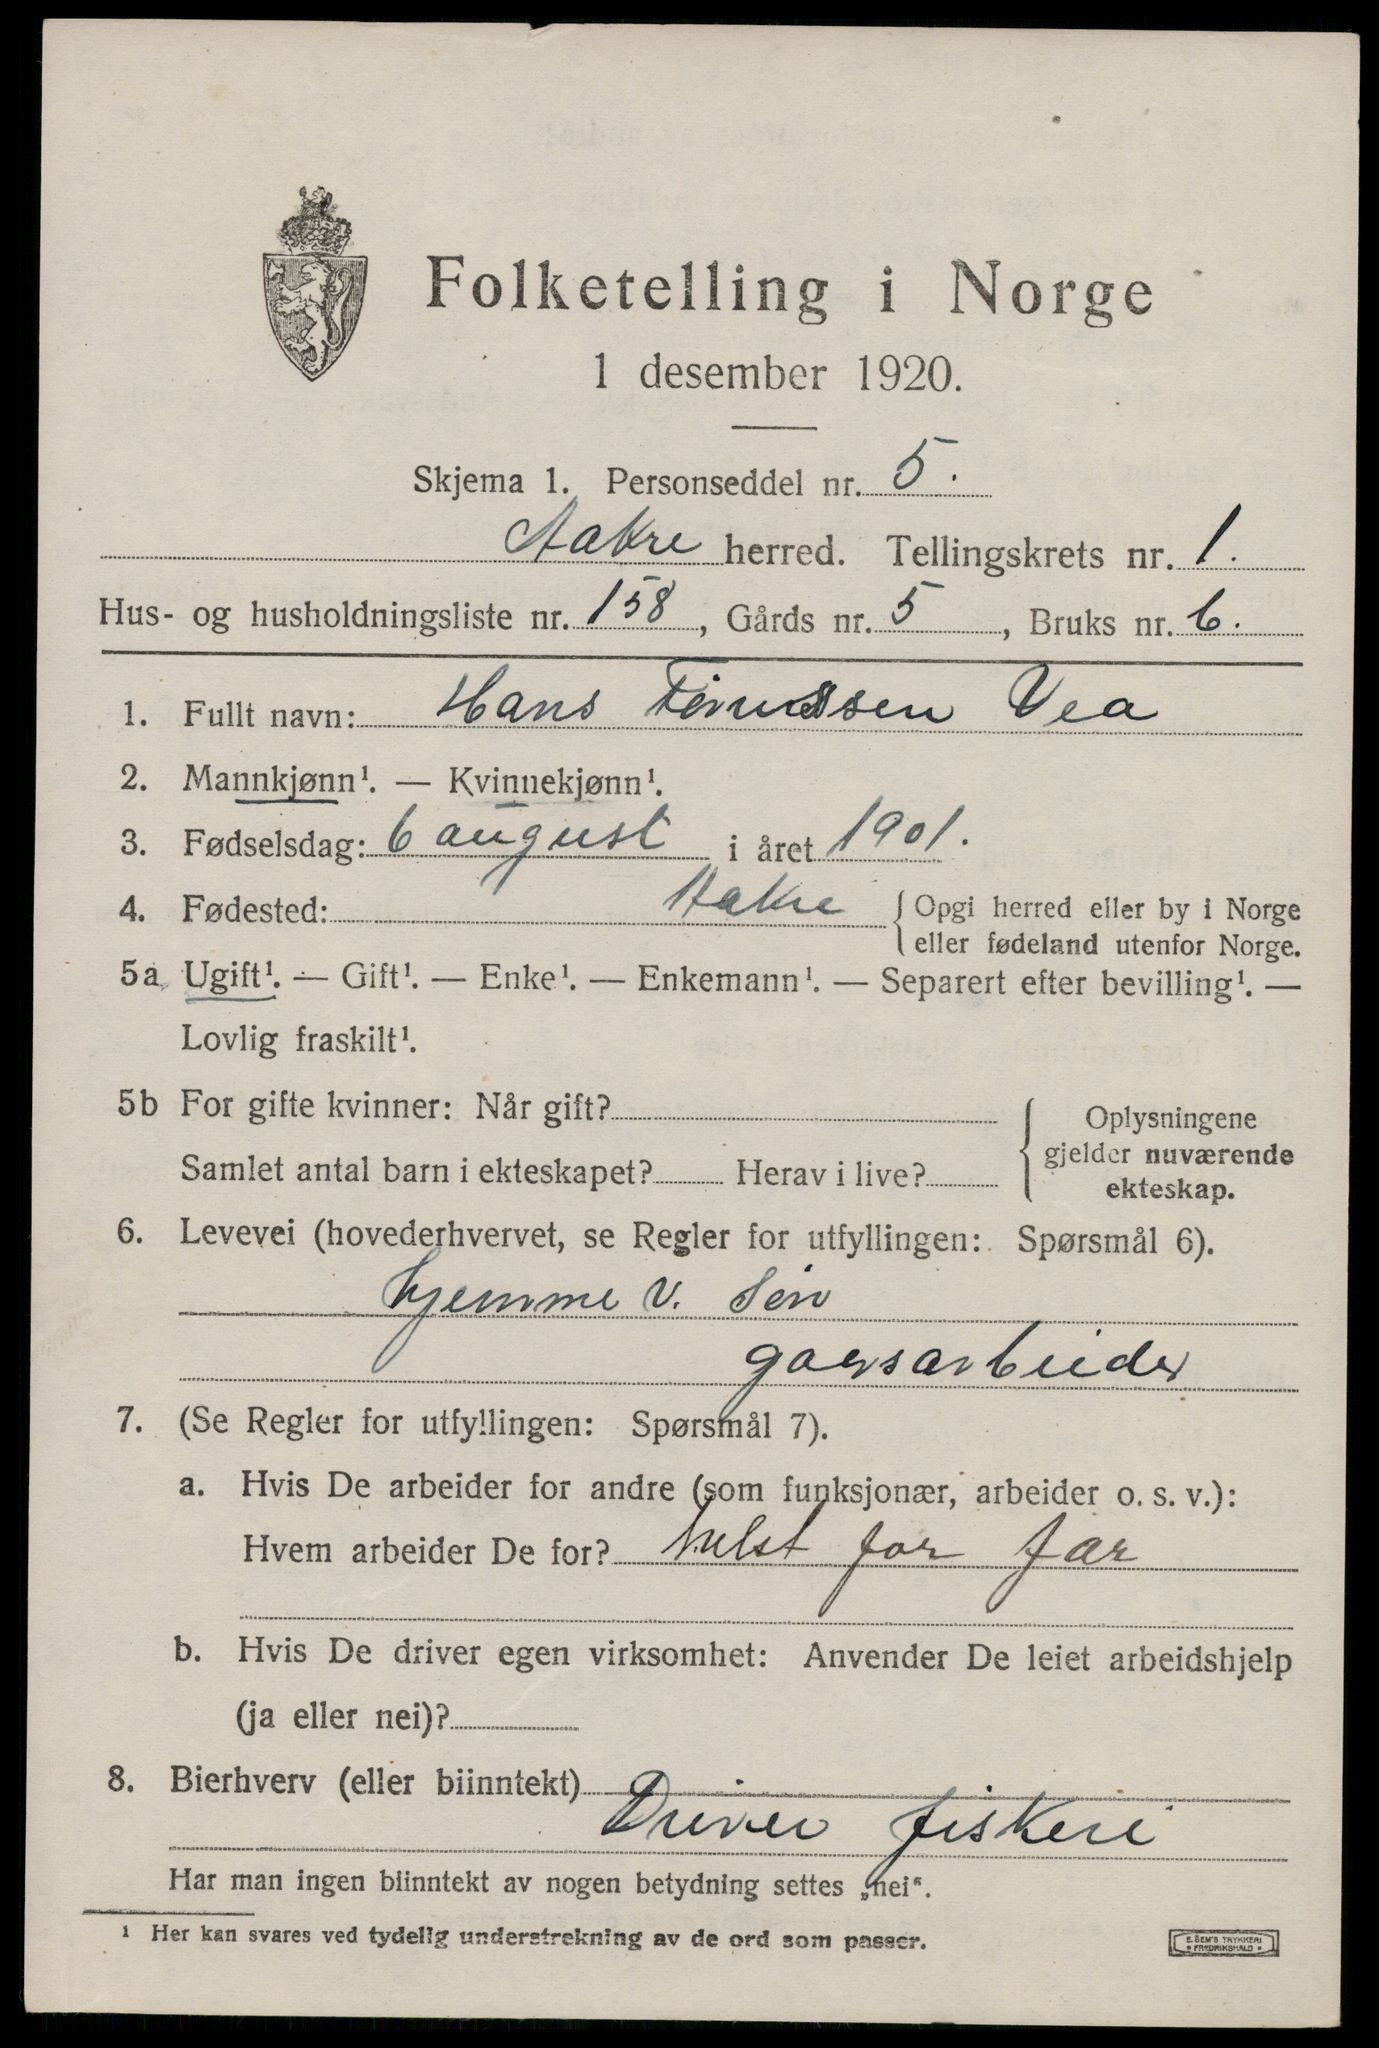 Folketelling i Norge
1 desember 1920.
Skjema 1. Personseddel nr. 5.
Aakre herred. Tellingskrets nr. 1.
Hus- og husholdningsliste nr. 158, Gårds nr. 5, Bruks nr. 6.
1. Fullt navn: Hans Vea
2. Mannkjønn¹. — Kvinnekjønn¹.
3. Fødselsdag: 6 august i året 1901.
4. Fødested: Aakre { Opgi herred eller by i Norge
eller fødeland utenfor Norge.
5a Ugift¹. — Gift¹. — Enke¹. — Enkemann¹. — Separert efter bevilling¹. —
Lovlig fraskilt¹.
5b For gifte kvinner: Når gift?
Samlet antal barn i ekteskapet? Herav i live?
{ Oplysningene
gjelder nuværende
ekteskap.
6. Levevei (hovederhvervet, se Regler for utfyllingen: Spørsmål 6).
hjemme v. Sön
7. (Se Regler for utfyllingen: Spørsmål 7).
a. Hvis De arbeider for andre (som funksjonær, arbeider o. s. v.):
Hvem arbeider De for? helst for far
b. Hvis De driver egen virksomhet: Anvender De leiet arbeidshjelp
(ja eller nei)?
8. Bierhverv (eller biinntekt)
Driver fiskeri
Har man ingen biinntekt av nogen betydning settes „nei“.
¹ Her kan svares ved tydelig understrekning av de ord som passer.
E. SEM'S TRYKKERI
FREDRIKSHALD